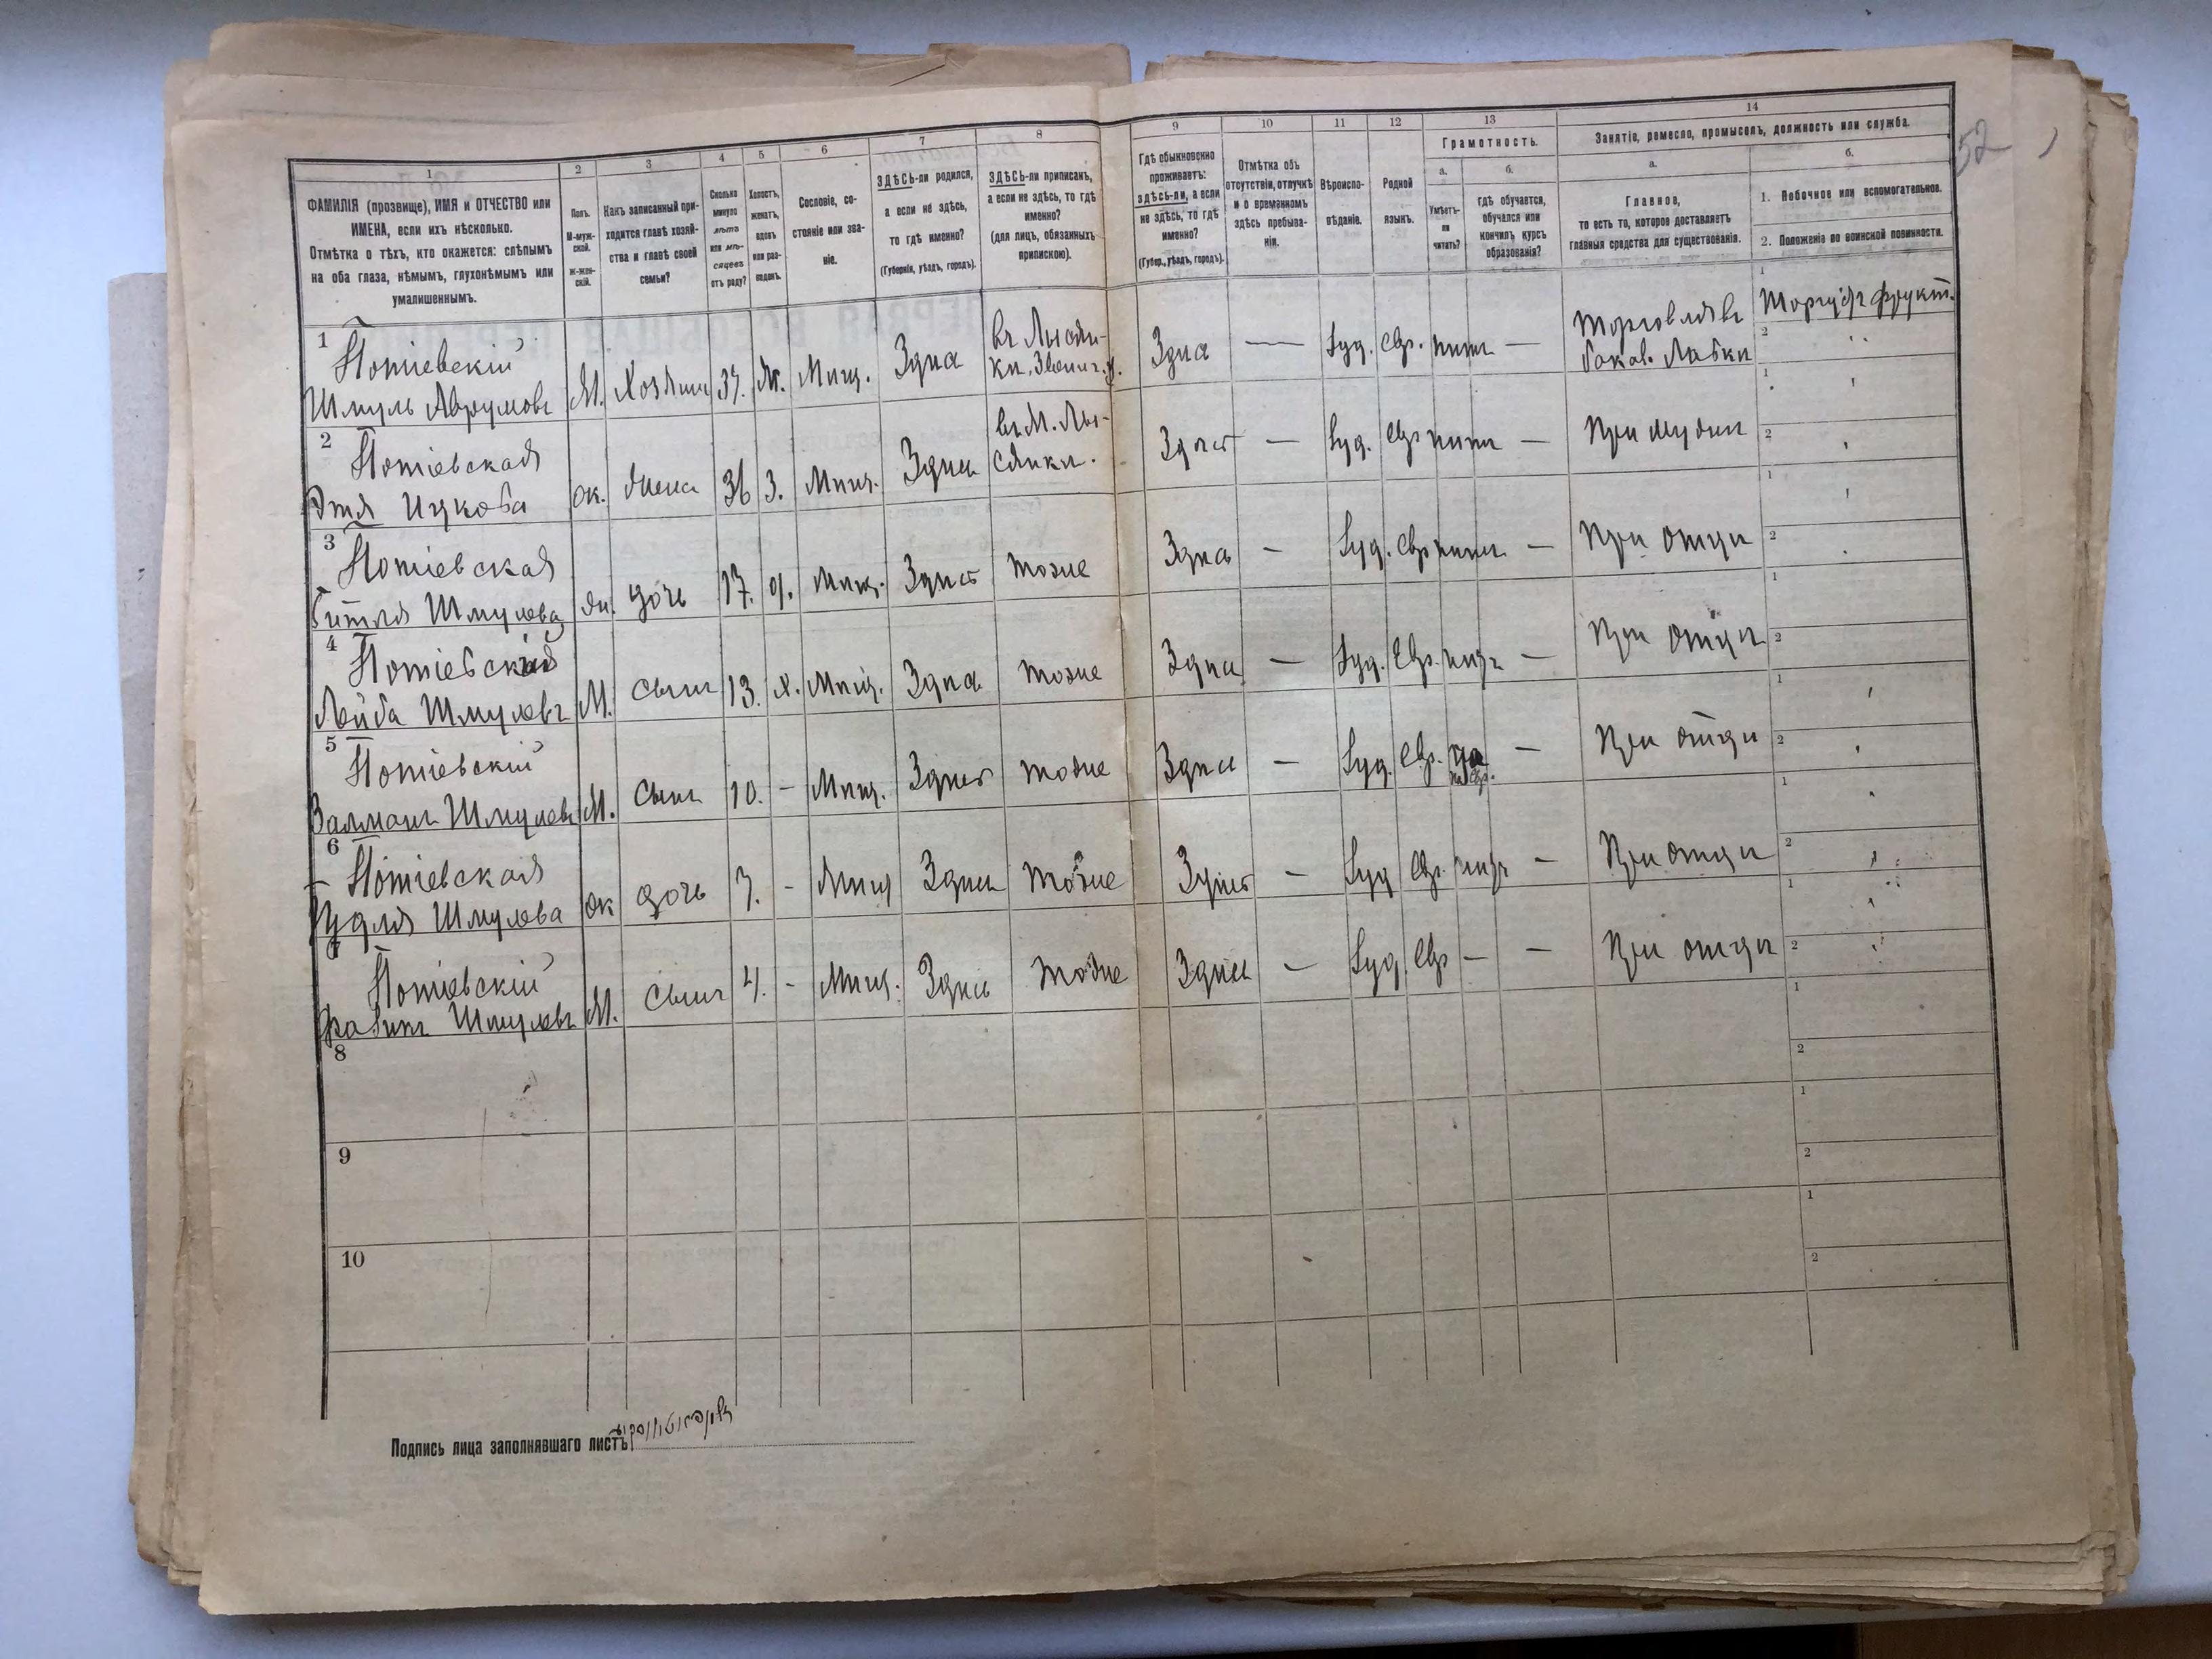 52
1
ФАМИЛІЯ (прозвище), ИМЯ и ОТЧЕСТВО или
ИМЕНА, если ихъ нѣсколько.
Отмѣтка о тѣхъ, кто окажется: слѣпымъ
на оба глаза, нѣмымъ, глухонѣмымъ или
умалишеннымъ.
2
Полъ.
М-муж-
ской.
Ж-жен-
скій.
3
Какъ записанный при-
ходится главѣ хозяй-
ства и главѣ своей
семьи?
4
Сколько
минуло
лѣтъ
или мѣ-
сяцевъ
отъ роду?
5
Холостъ,
женатъ,
вдовъ
или раз-
веденъ.
6
Сословіе, со-
стояніе или зва-
ніе.
7
ЗДѢСЬ-ли родился,
а если не здѣсь,
то гдѣ именно?
(Губернія, уѣздъ, городъ).
8
ЗДѢСЬ-ли приписанъ,
а если не здѣсь, то гдѣ
именно?
(для лицъ, обязанныхъ
припискою).
9
Гдѣ обыкновенно
проживаетъ:
здѣсь-ли, а если
не здѣсь, то гдѣ
именно?
(Губер., уѣздъ, городъ).
10
Отмѣтка объ
отсутствіи, отлучкѣ
и о временномъ
здѣсь пребыва-
ніи.
11
Вѣроиспо-
вѣданіе.
12
Родной
языкъ.
13
Грамотность.
а.
Умѣетъ-
ли
читать?
б.
гдѣ обучается,
обучался или
кончилъ курсъ
образованія?
14
Занятіе, ремесло, промыселъ, должность или служба.
а.
Главное,
то есть то, которое доставляетъ
главныя средства для существованія.
б.
1. Побочное или вспомогательное.
2. Положеніе по воинской повинности.
1 Потіевскій
Шмуль Аврумовъ М. Хозяинъ 37. Ж. Мѣщ. Здѣсь въ Лысян-
ки, Звениг. у. Здѣсь — Іуд. Евр. — Торговля въ
бакал. лавки
2 Потіевская
Этя Ицкова ж. Жена 36 З. Мѣщ. Здѣсь въ М. Лы-
сянки. Здѣсь — Іуд. Евр — При мужѣ
3 Потіевская
Гитля Шмулева ж. дочь 17. д. Мѣщ. Здѣсь тоже Здѣсь — Іуд. Евр — При отцѣ
4 Потіевскій
Лейба Шмулевъ М. Сынъ 13. х. Мѣщ. Здѣсь тоже Здѣсь — Іуд. Евр. — При отцѣ
5 Потіевскій
Залманъ Шмулевъ М. Сынъ 10. - Мѣщ. Здѣсь тоже Здѣсь — Іуд. Евр. да
на Евр. — При отцѣ
6 Потіевская
Шмулева ж дочь 7. - Мѣщ Здѣсь тоже Здѣсь — Іуд Евр. — При отцѣ
Потіевскій
Шмулевъ М. Сынъ 4. - Мѣщ. Здѣсь тоже Здѣсь — Іуд Евр — — При отцѣ
8
9
10
Подпись лица заполнявшаго листъ